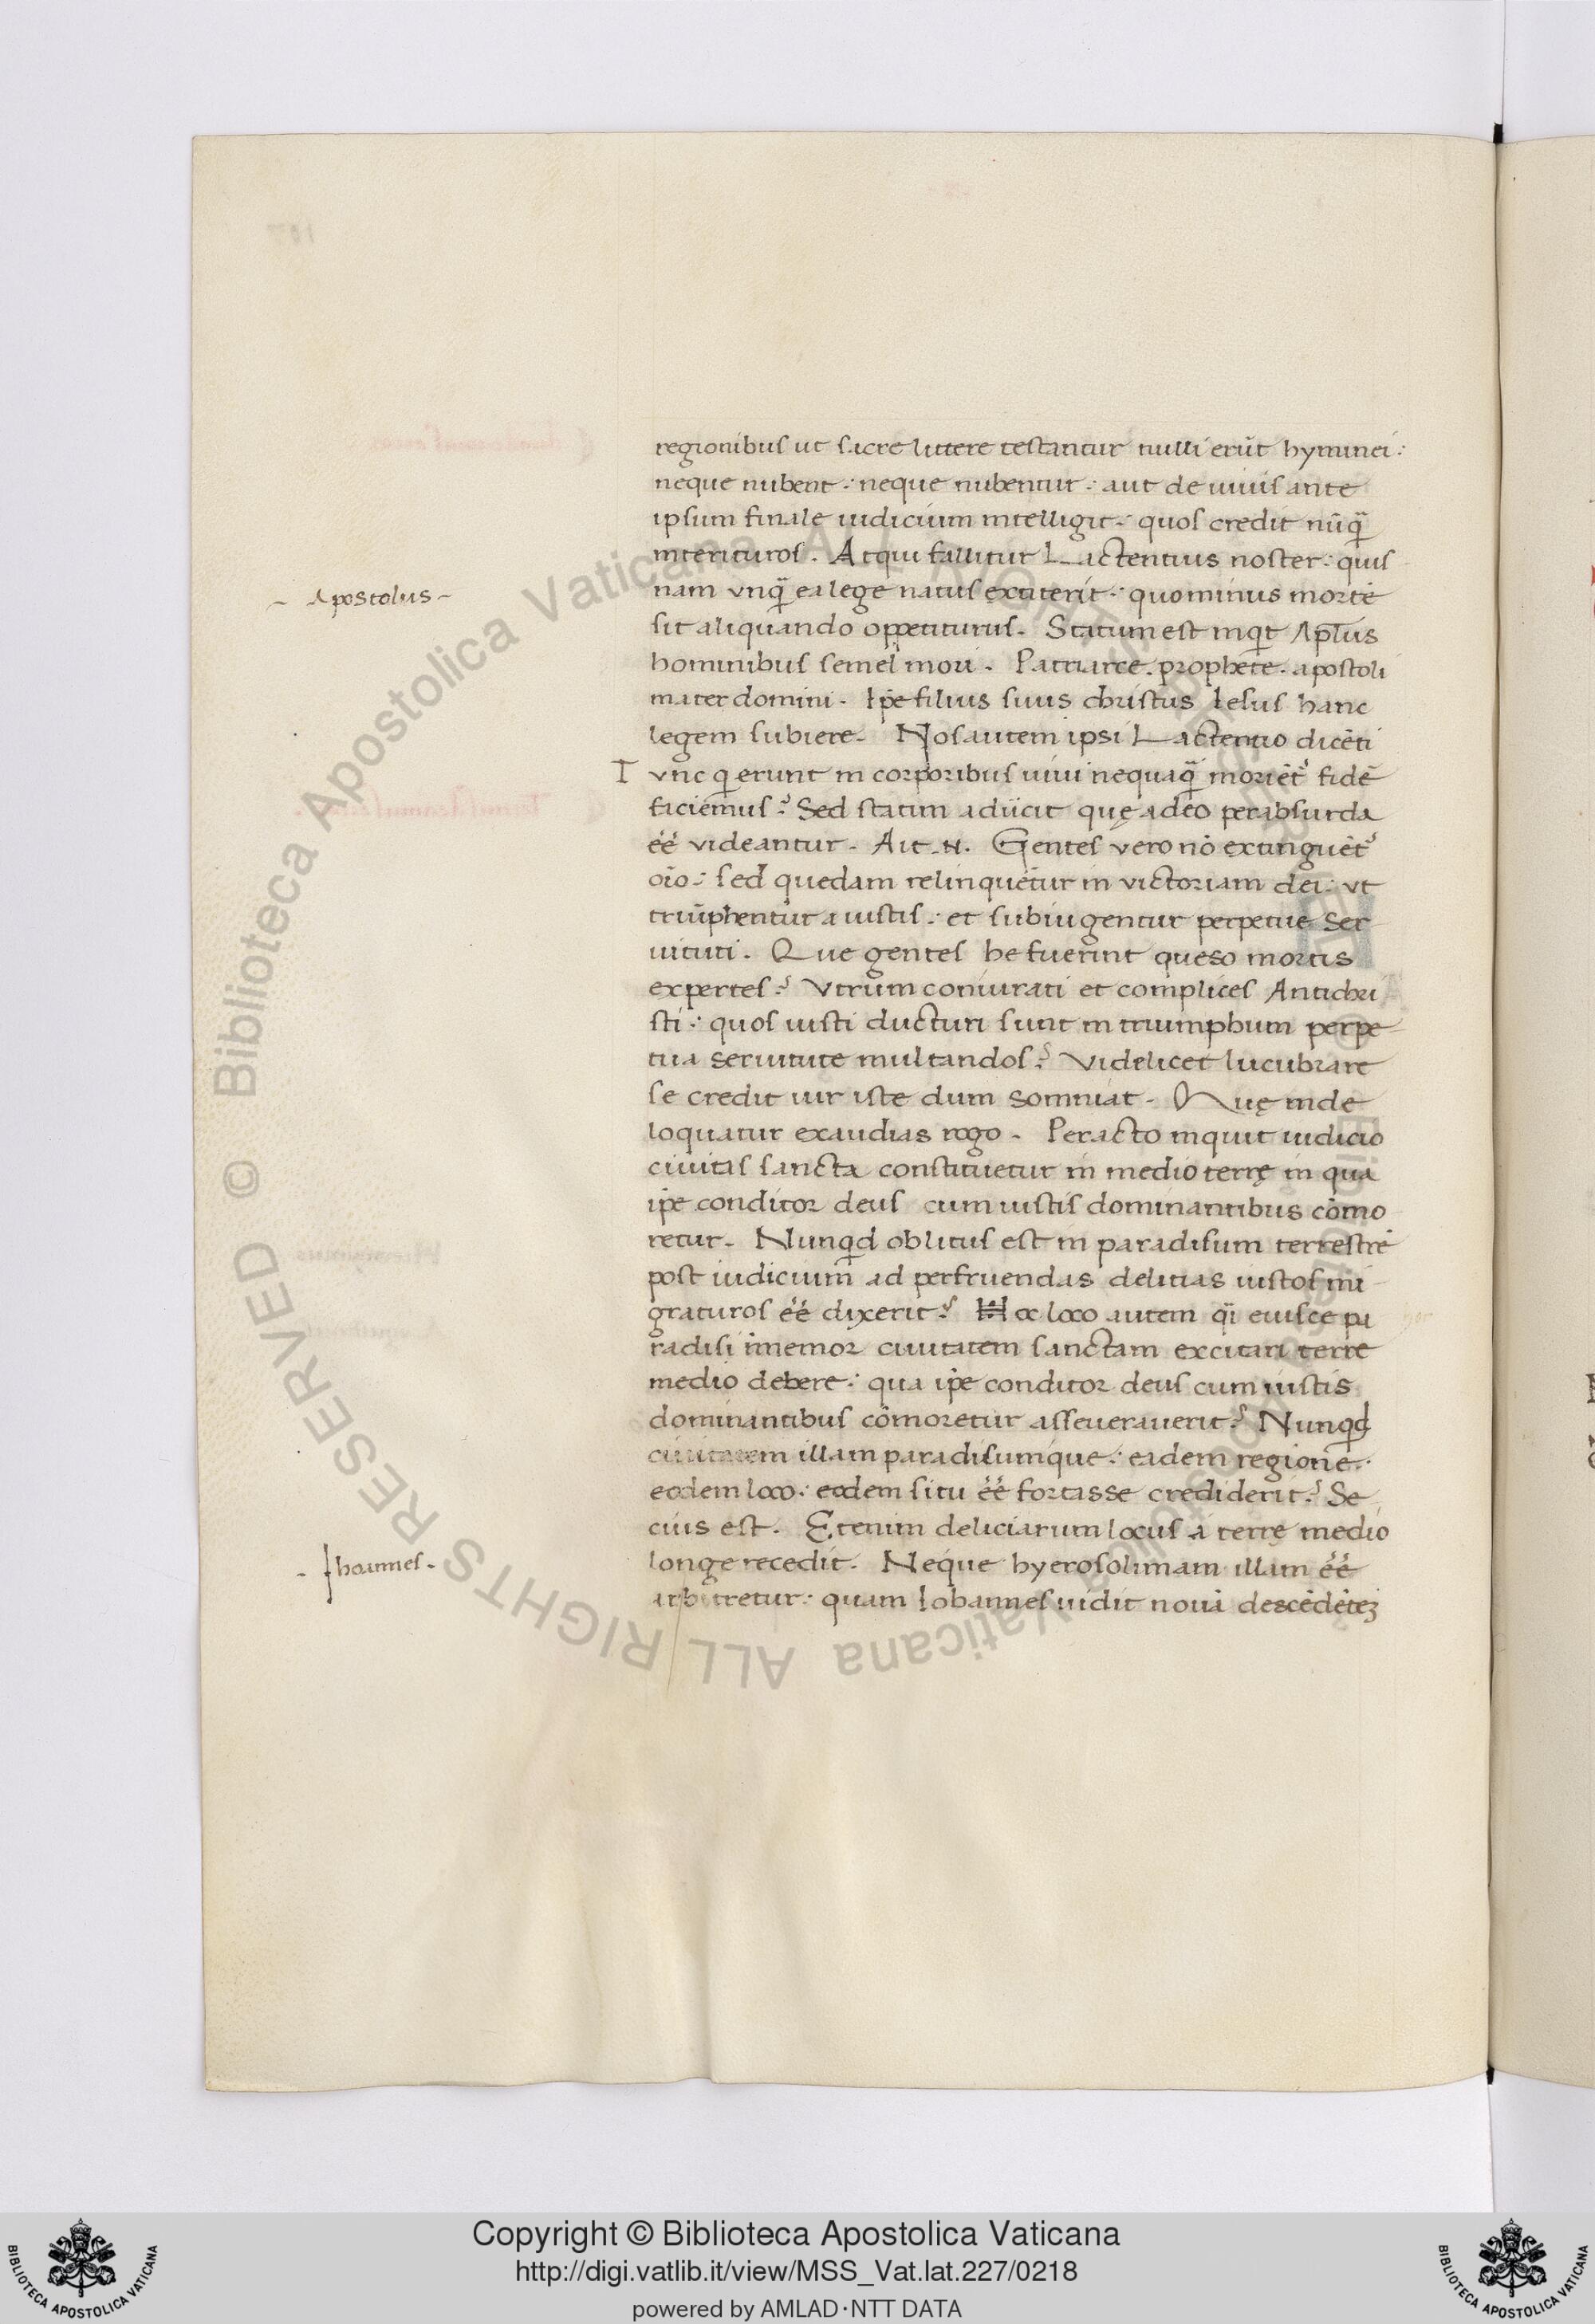 regionibus ut sacre littere testantur nulli erūt hyminei:
neque nubent: neque nubentur: aut de uiuis ante
ipsum finale iudicium intelligit: quos credit nūq̄
interituros. Atqui fallitur Lactentius noster: quis
nam vnq̄ ea lege natus extiterit: quominus mortē
- Apostolus -
sit aliquando oppetiturus. Statum est inqt Aplus
hominibus semel mori. Patriarce. prophete. apostoli
mater domini. Ipe filius suus christus Iesus hanc
legem subiere. Nos autem ipsi Lactentio dicēti
Tvnc q erunt in corporibus uiui nequaq̄ moriēt fidē
faciemus? Sed statim adiicit quę adeo perabsurda
éé videantur. Ait .N. Gentes vero nō extinguēt
oio: sed quedam relinquētur in victoriam dei: vt
triūphentur a iustis: et subiugentur perpetue ser
uituti. Que gentes he fuerint queso mortis
expertes? Vtrum coniurati et complices Antichri
sti: quos iusti ducturi sunt in triumphum perpe
tua seruitute multandos? Videlicet lucubrare
se credit uir iste dum somniat. Quę inde
loquatur exaudias rogo. Peracto inquit iudicio
ciuitas sancta constituetur in medio terrę in qua
ipe conditor deus cum iustis dominantibus cōmo
retur. Nunqd oblitus est in paradisum terrestrē
post iudicium ad perfruendas delitias iustos mi
graturos éé dixerit? Hoc loco autem q̄i eiusce pa
radisi īmemor ciuitatem sanctam excitari terre
medio debere: qua ipe conditor deus cum iustis
dominantibus cōmoretur asseuerauerit? Nunqd
ciuitatem illam paradisumque: eadem regione:
eodem loco: eodem situ éé fortasse crediderit? Se
cius est. Etenim deliciarum locus a terrę medio
longe recedit. Neque hyerosolimam illam éé
- Ihoannes -
arbitretur: quam Iohannes uidit nouā descēdētēʒ
Copyright © Biblioteca Apostolica Vaticana
http://digi.vatlib.it/view/MSS_Vat.lat.227/0218
powered by AMLAD·NTT DATA
BIBLIOTECA APOSTOLICA VATICANA
BIBLIOTECA APOSTOLICA VATICANA
Biblioteca Apostolica Vaticana ALL RIGHTS RESERVED ©